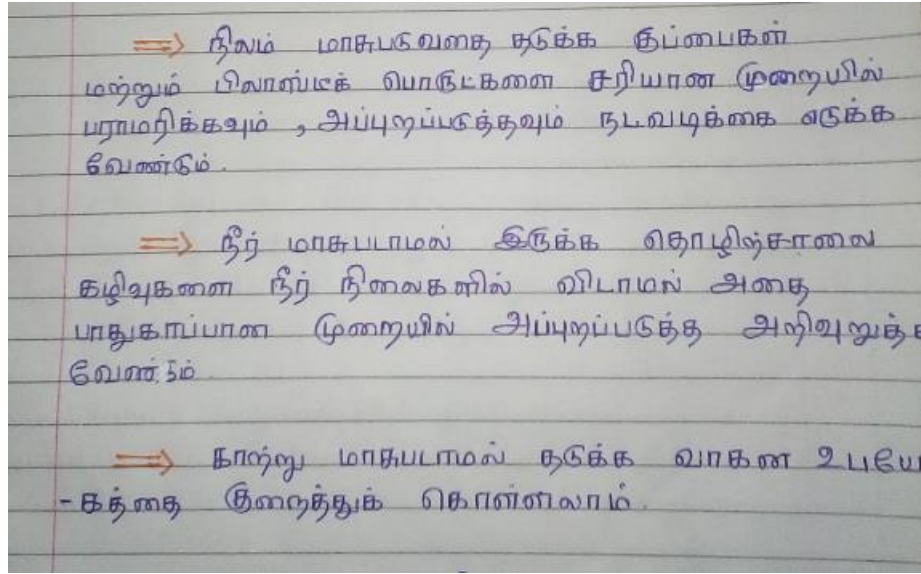 ⇒ நிலம் மாசுபடுவதை தடுக்க குப்பைகள்
மற்றும் பிலாஸ்டிக் பொருட்களை சரியான முறையில்
பராமரிக்கவும் , அப்புறப்படுத்தவும் நடவடிக்கை எடுக்க
வேண்டும் .
⇒ நீர் மாசுபடாமல் இருக்க தொழிற்சாலை
கழிவுகளை நீர் நிலைகளில் விடாமல் அதை
பாதுகாப்பான முறையில் அப்புறப்படுத்த அறிவுறுத்த
வேண்டும்
⇒ காற்று மாசுபடாமல் தடுக்க வாகன உபயோ
-கத்தை குறைத்துக் கொள்ளலாம் .